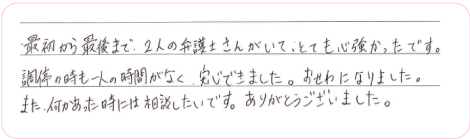 最初から最後まで、2人の弁護士さんがいて、とても心強かったです。
調停の時も一人の時間がなく、安心できました。おせわになりました。
また、何かあった時には相談したいです。ありがとうございました。